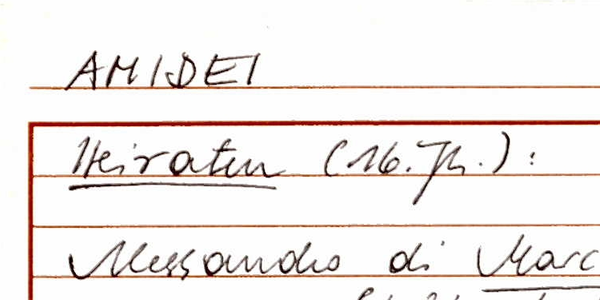 AMIDEI
Heiraten (16. Jh.):
Alessandro di Marc